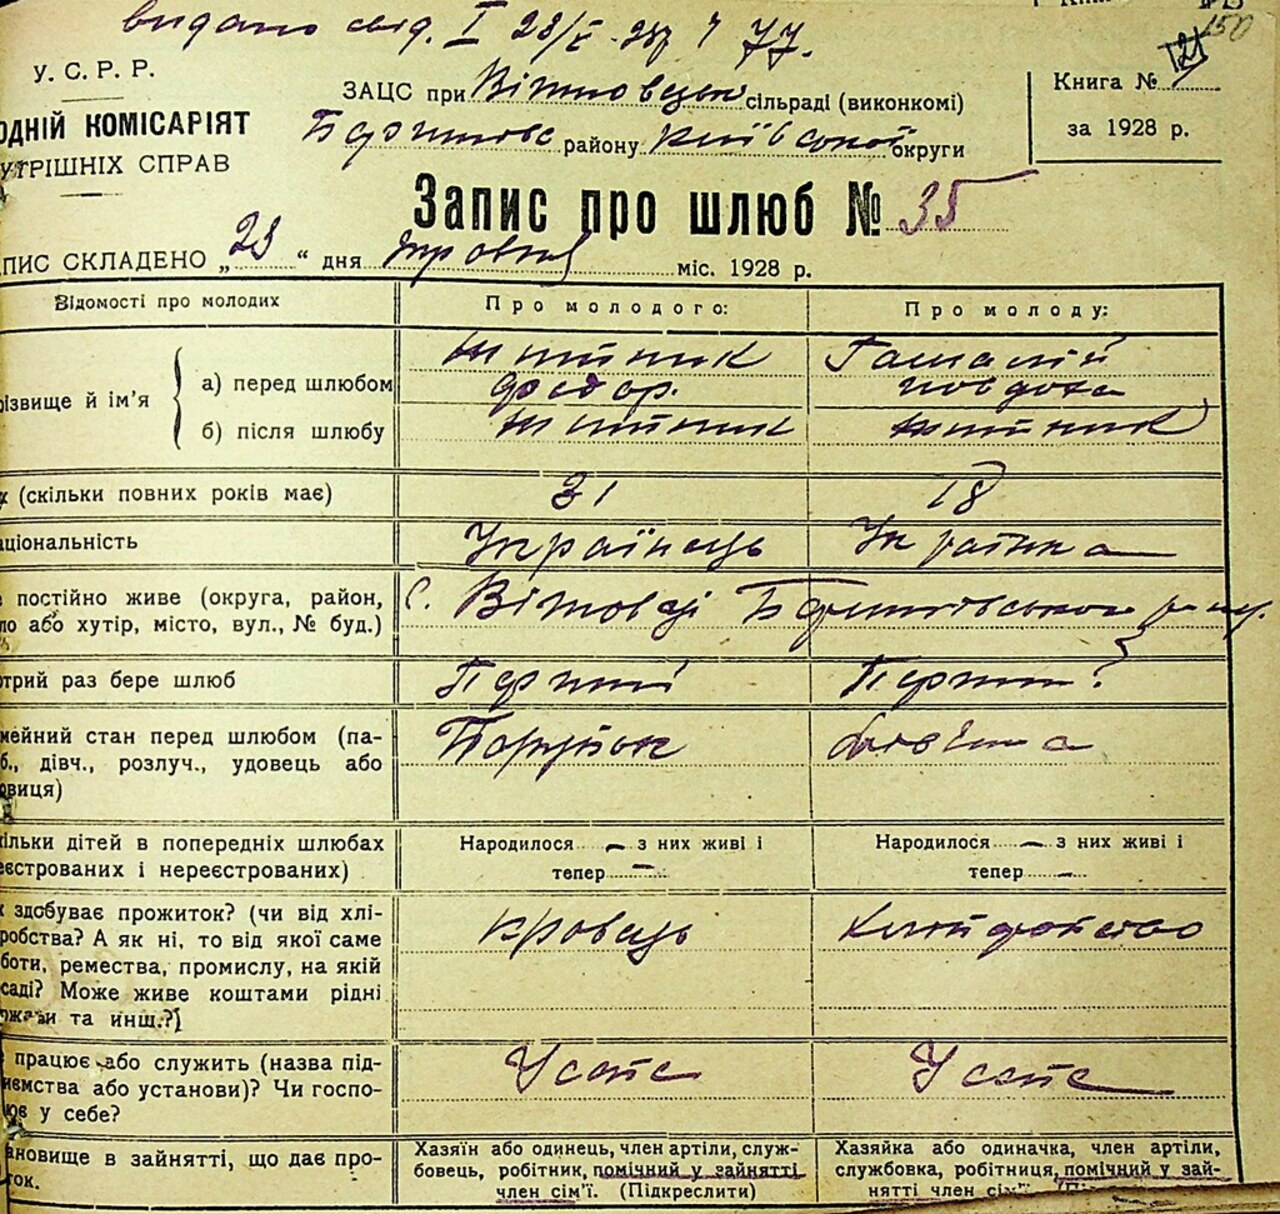 видано свід. I 28/V-28р Ч 77.
150
У. С. Р. Р.
ЗАЦС при Вітовецьк сільраді (виконкомі)
Книга №
ОДНІЙ КОМІСАРІЯТ
району Київської округи
за 1928 р.
УТРІШНІХ СПРАВ
Запис про шлюб № 35
ПИС СКЛАДЕНО „ 23 “ дня травня міс. 1928 р.
Відомості про молодих
Про молодого:
Про молоду:
різвище й ім'я
а) перед шлюбом
Житник
Гамалій
Федор.
Явдоха
б) після шлюбу
Житник
Житник
к (скільки повних років має)
31
18
аціональність
Українець
Українка
е постійно живе (округа, район, ло або хутір, місто, вул., № буд.)
с. Вітовці
отрий раз бере шлюб
Перший
Перший
мейний стан перед шлюбом (па-
б., дівч., розлуч., удовець або
овиця)
Парубок
Дівчина
кільки дітей в попередніх шлюбах
еєстрованих і нереєстрованих)
Народилося — з них живі і
тепер —
Народилося — з них живі і
тепер —
к здобуває прожиток? (чи від хлі-
робства? А як ні, то від якої саме
боти, ремества, промислу, на якій
саді? Може живе коштами рідні
ржави та инш.?)
кровець
е працює або служить (назва під-
иємства або установи)? Чи госпо-
ює у себе?
У себе
У себе
ановище в зайнятті, що дає про-
ток.
Хазяїн або одинець, член артіли, служ-
бовець, робітник, помічний у зайнятті
член сім'ї. (Підкреслити)
Хазяйка або одиначка, член артіли,
службовка, робітниця, помічний у зай-
нятті член сім'ї.